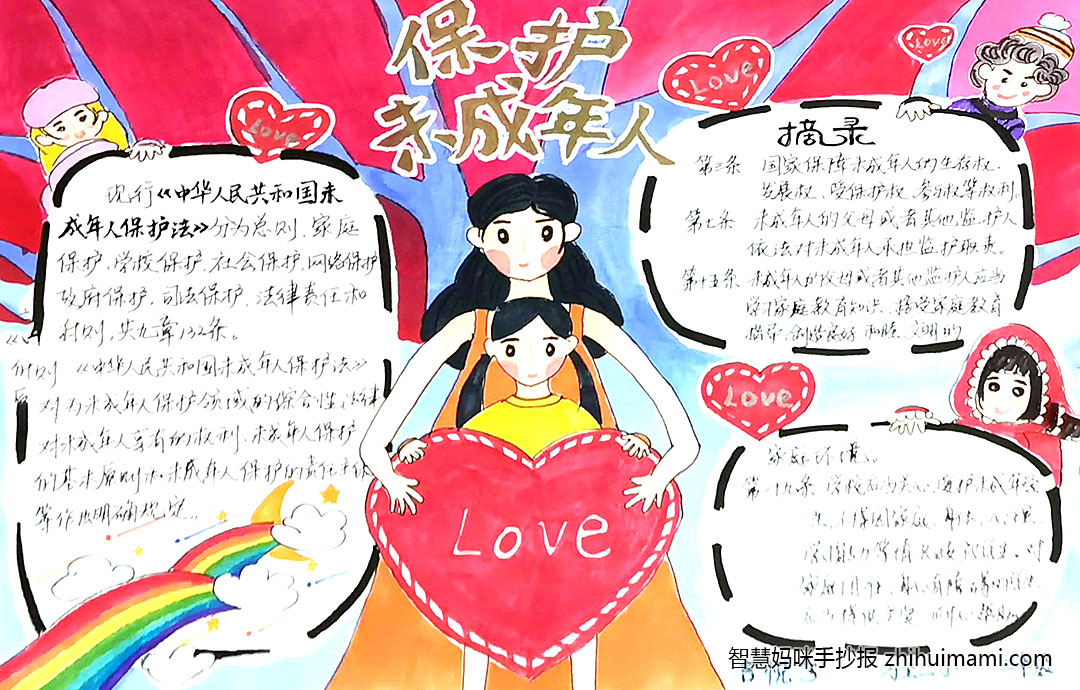 保护
未成年人
Love
Love
Love
现行《中华人民共和国未
成年人保护法》分为总则、家庭
保护、学校保护、社会保护、网络保护
政府保护、司法保护、法律责任和
附则，共九章132条。
《中华人民共和国未成年人保护法》
对为未成年人保护领域的综合性法律
对未成年人享有的权利，未成年人保护
的基本原则和未成年人保护的责任主体
等作出明确规定。
摘录
第三条 国家保障未成年人的生存权、
发展权、受保护权、参与权等权利。
第七条 未成年人的父母或者其他监护人
依法对未成年人承担监护职责。
第十五条 未成年人的父母或者其他监护人应当
学习家庭教育知识，接受家庭教育
指导，创造良好、和睦、文明的
Love
家庭环境。
第二十九条 学校应当关心、爱护未成年学
生，
Love
智慧妈咪手抄报 zhihuimami.com